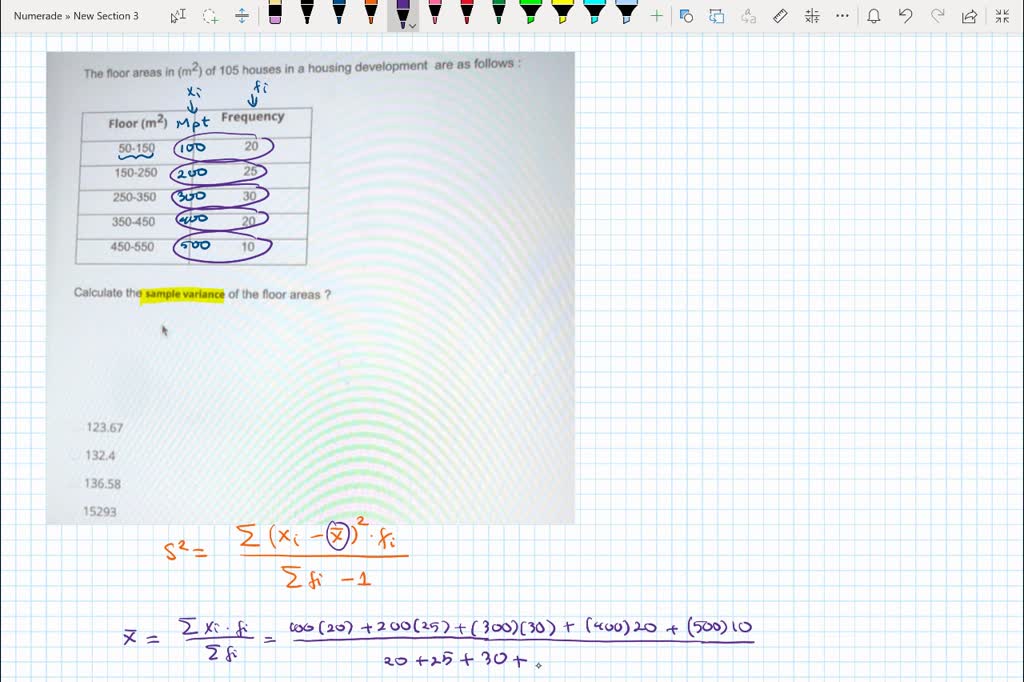 Numerade » New Section 3
The floor areas in (m²) of 105 houses in a housing development are as follows :
xi fi
Floor (m²) Mpt Frequency
50-150 100 20
150-250 200 25
250-350 300 30
350-450 400 20
450-550 500 10
Calculate the sample variance of the floor areas ?
123.67
132.4
136.58
15293
S² = Σ (xi - x̄)² · fi / Σ fi - 1
x̄ = Σ xi · fi / Σ fi = 100(20) + 200(25) + (300)(30) + (400)20 + (500)10 / 20 + 25 + 30 +